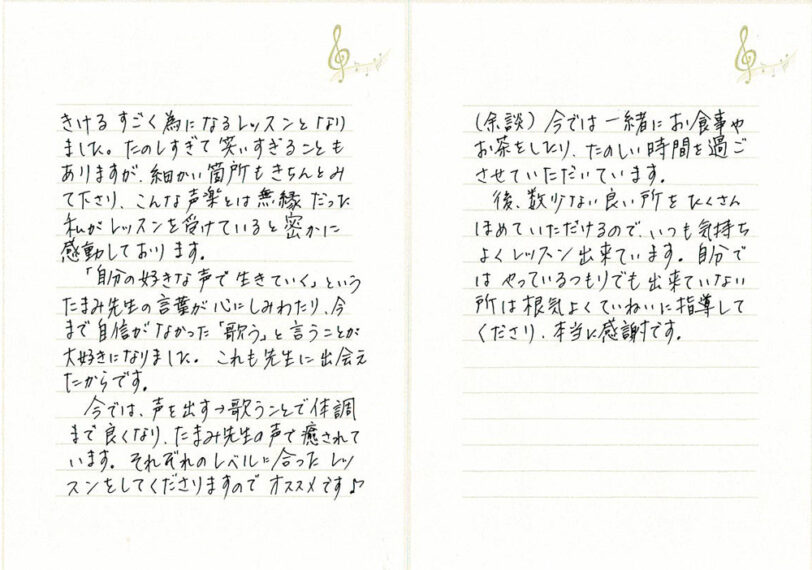 きける すごく為になるレッスンとなり
ました。たのしすぎて笑いすぎることも
ありますが、細かい箇所もきちんとみ
て下さり、こんな声楽とは無縁だった
私がレッスンを受けていると密かに
感動しております。
「自分の好きな声で生きていく」という
たまみ先生の言葉が心にしみわたり、今
まで自信がなかった「歌う」と言うことが
大好きになりました。これも先生に出会え
たからです。
今では、声を出す→歌うことで体調
まで良くなり、たまみ先生の声で癒されて
います。それぞれのレベルに合ったレッ
スンをしてくださりますのでオススメです♪
(余談) 今では一緒にお食事や
お茶をしたり、たのしい時間を過ご
させていただいています。
後、数少ない良い所をたくさん
ほめていただけるので、いつも気持ち
よくレッスン出来ています。自分で
はやっているつもりでも出来ていない
所は根気よくていねいに指導して
くださり、本当に感謝です。